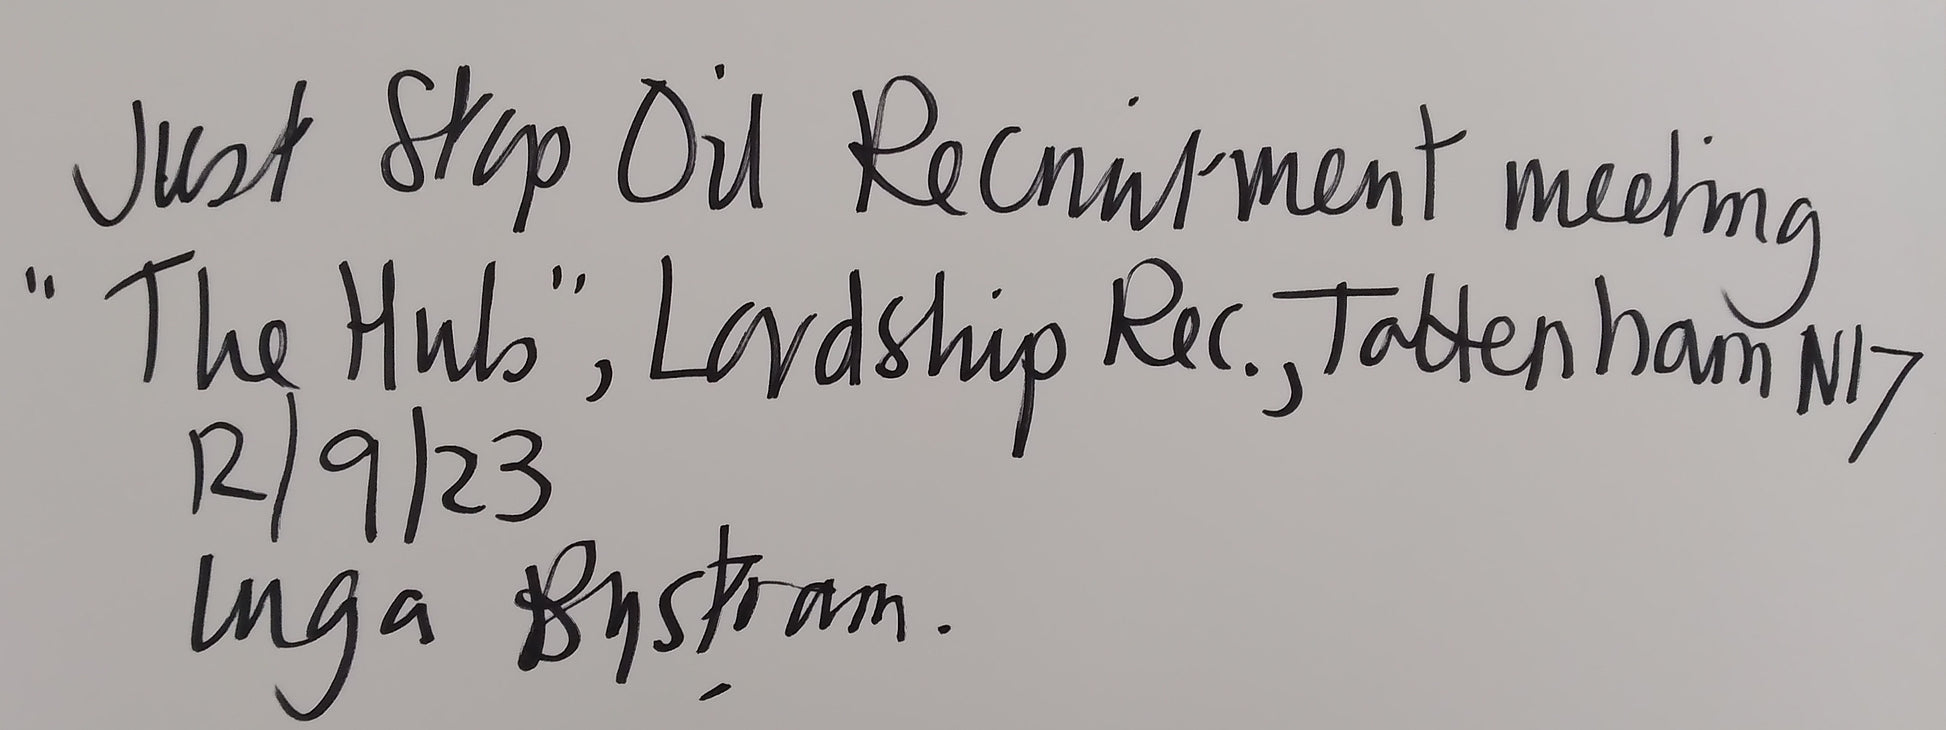 Just Stop Oil Recruitment meeting
"The Hub", Lordship Rec., Tottenham N17
12/9/23
Inga Bystram.